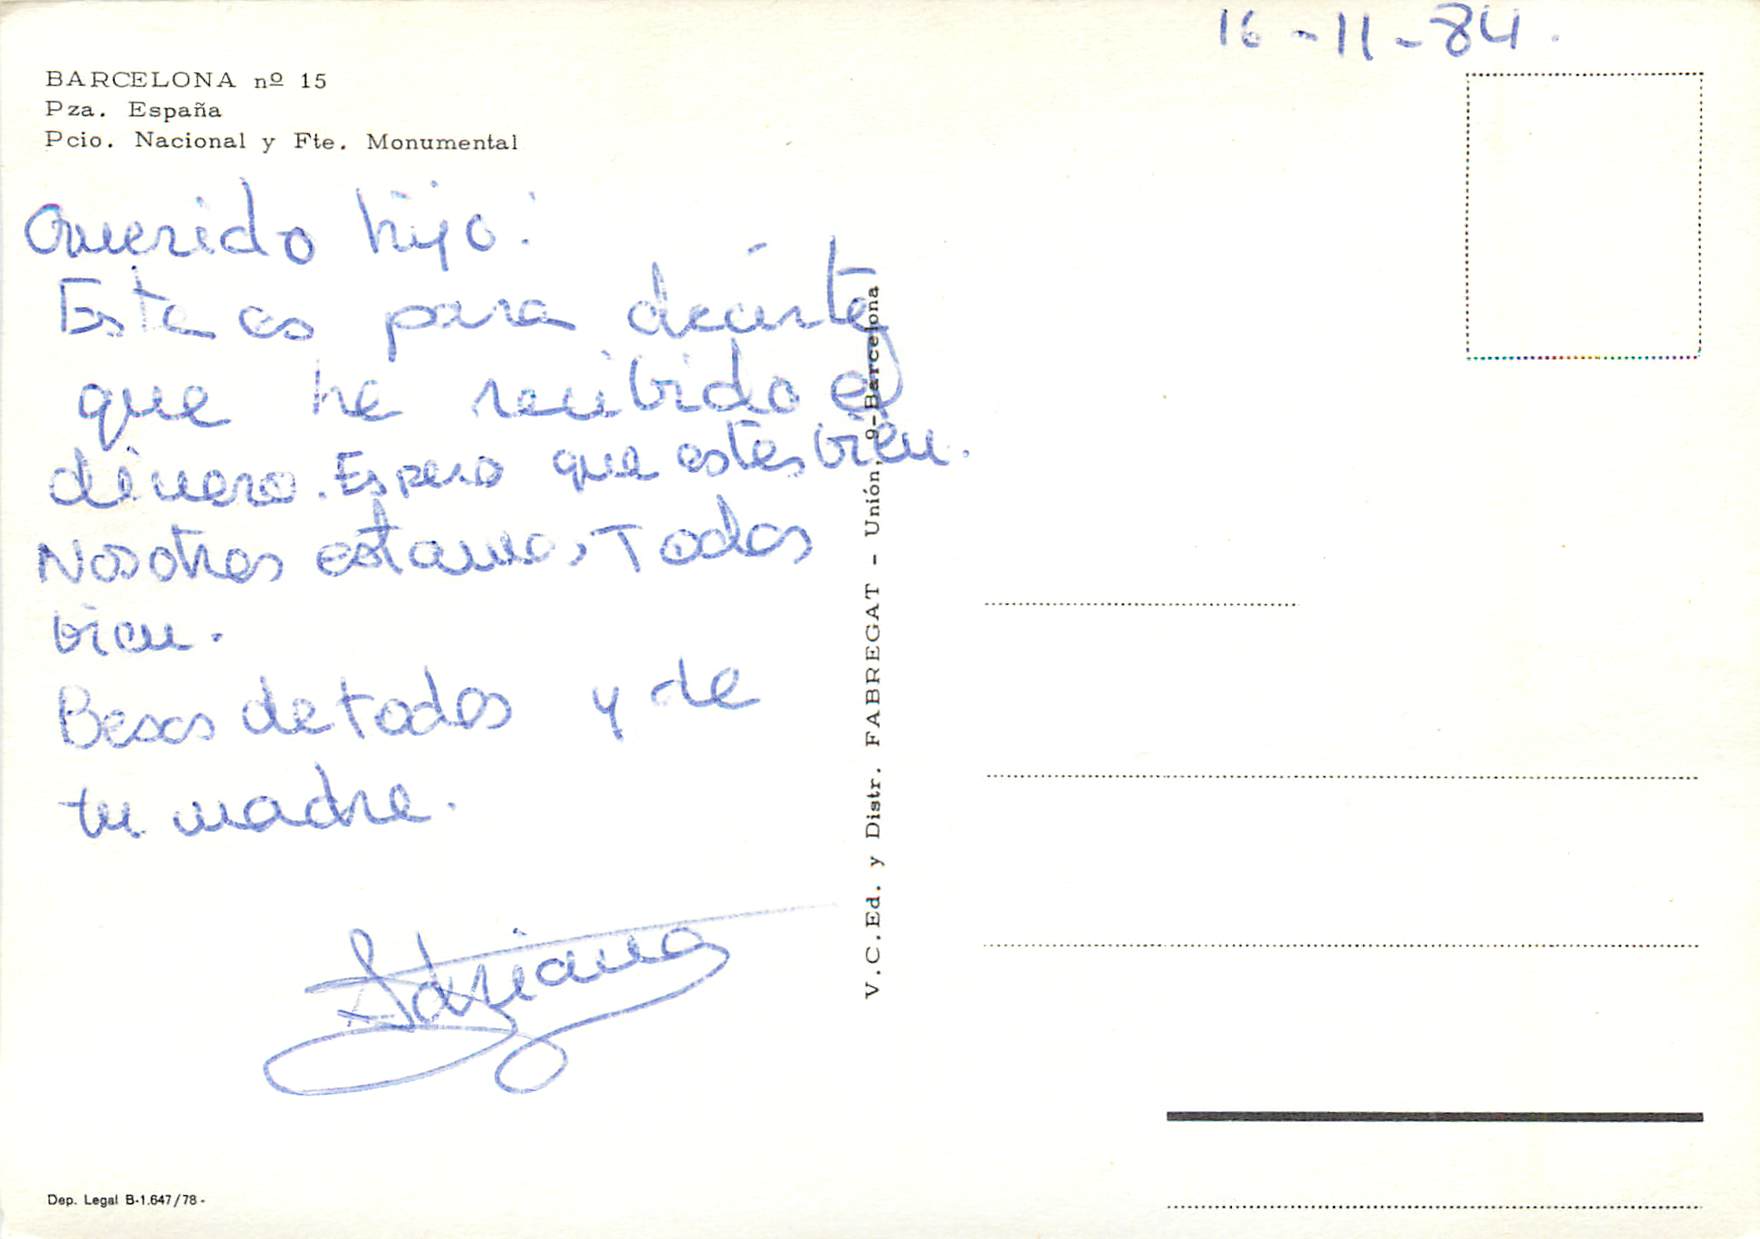 16-11-84.
BARCELONA nº 15
Pza. España
Pcio. Nacional y Fte. Monumental
Querido hijo:
Esta es para decirte
que he recibido el
dinero. Espero que estes bien.
Nosotros estamos Todos
bien.
Besos de todos y de
tu madre.
Adriana
V.C.Ed. y Distr. FABREGAT - Unión, 9-Barcelona
Dep. Legal B-1.647/78-